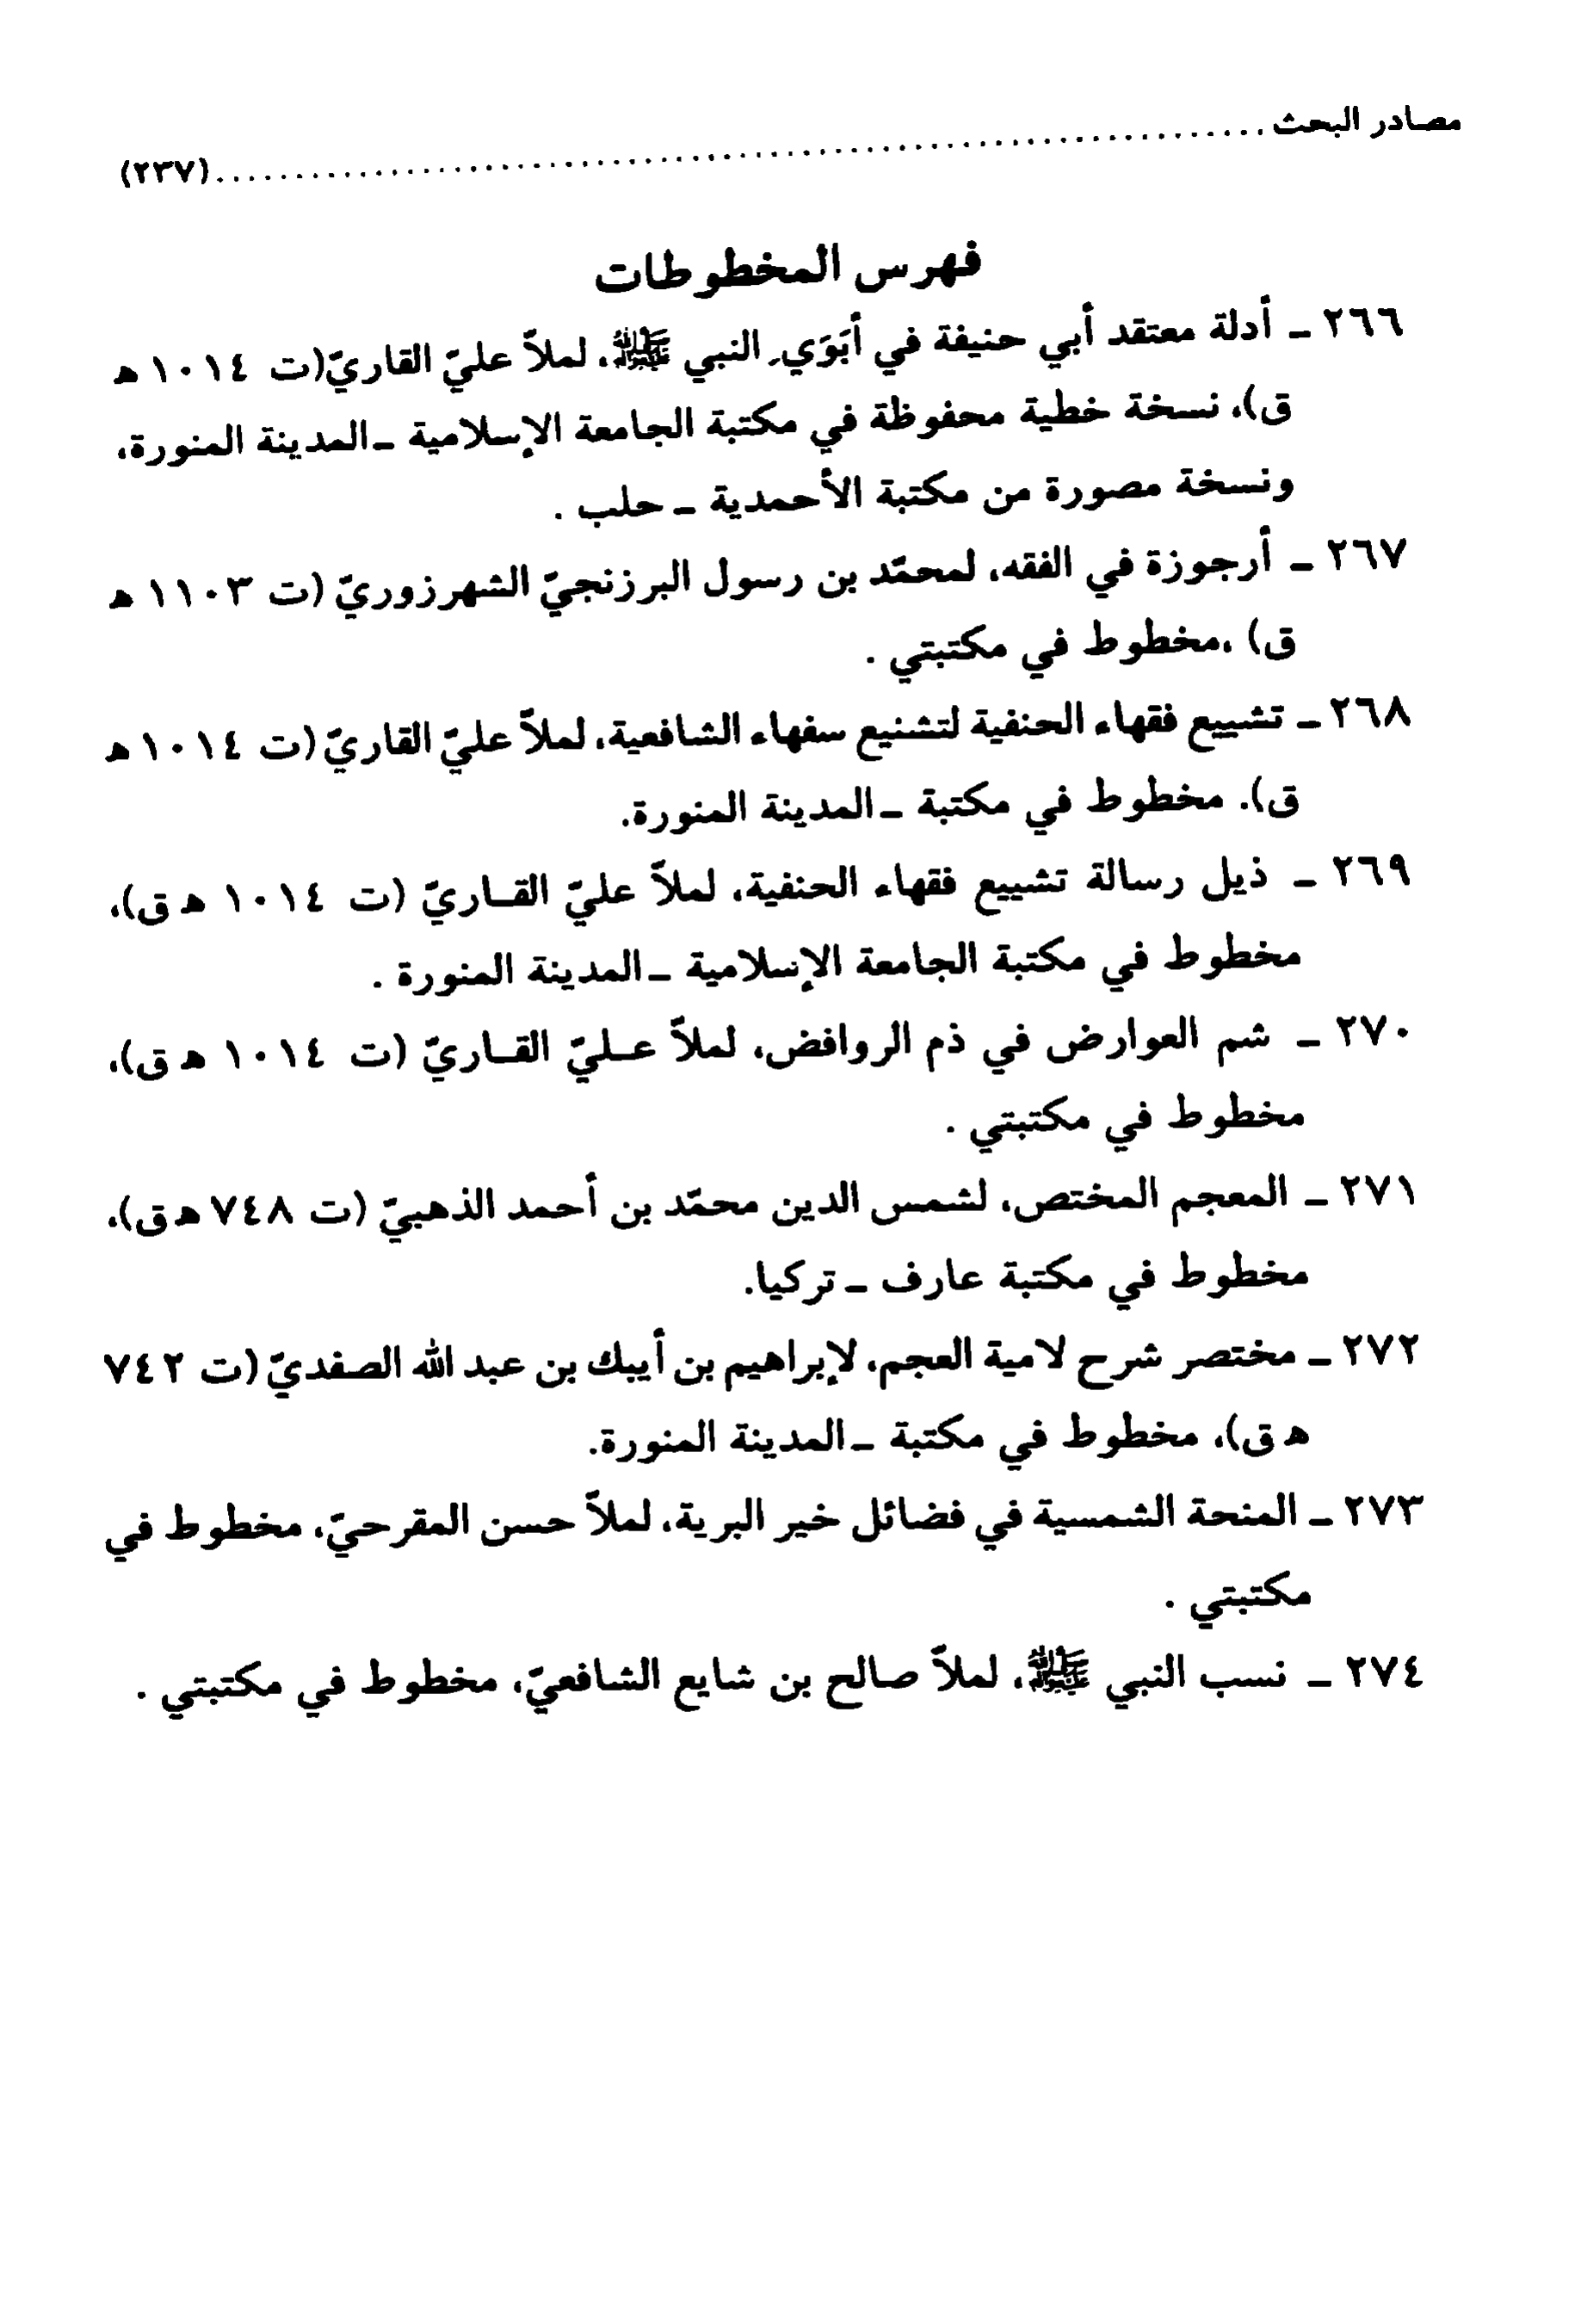 مصادر البحث ........................................ (٢٣٧)
فهرس المخطوطات
٢٦٦ ـ أدلة معتقد أبي حنيفة في أبَوَيِ النبي ﷺ، لملاّ عليّ القاريّ(ت ١٠١٤ هـ
ق)، نسخة خطية محفوظة في مكتبة الجامعة الإسلامية ـ المدينة المنورة،
ونسخة مصورة من مكتبة الأحمدية ـ حلب .
٢٦٧ ـ أرجوزة في الفقه، لمحمّد بن رسول البرزنجيّ الشهرزوريّ (ت ١١٠٣ هـ
ق) ،مخطوط في مكتبتي .
٢٦٨ ـ تشييع فقهاء الحنفية لتشنيع سفهاء الشافعية، لملاّ عليّ القاريّ (ت ١٠١٤ هـ
ق). مخطوط في مكتبة ـ المدينة المنورة.
٢٦٩ ـ ذيل رسالة تشييع فقهاء الحنفية، لملاّ عليّ القـاريّ (ت ١٠١٤ هـ ق)،
مخطوط في مكتبة الجامعة الإسلامية ـ المدينة المنورة .
٢٧٠ ـ شم العوارض في ذم الروافض، لملاّ عـليّ القـاريّ (ت ١٠١٤ هـ ق)،
مخطوط في مكتبتي .
٢٧١ ـ المعجم المختص، لشمس الدين محمّد بن أحمد الذهبيّ (ت ٧٤٨ هـ ق)،
مخطوط في مكتبة عارف ـ تركيا.
٢٧٢ ـ مختصر شرح لامية العجم، لإبراهيم بن أيبك بن عبد الله الصفديّ (ت ٧٤٢
هـ ق)، مخطوط في مكتبة ـ المدينة المنورة.
٢٧٣ ـ المنحة الشمسية في فضائل خير البرية، لملاّ حسن المقرحيّ، مخطوط في
مكتبتي .
٢٧٤ ـ نسب النبي ﷺ، لملاّ صالح بن شايع الشافعيّ، مخطوط في مكتبتي .